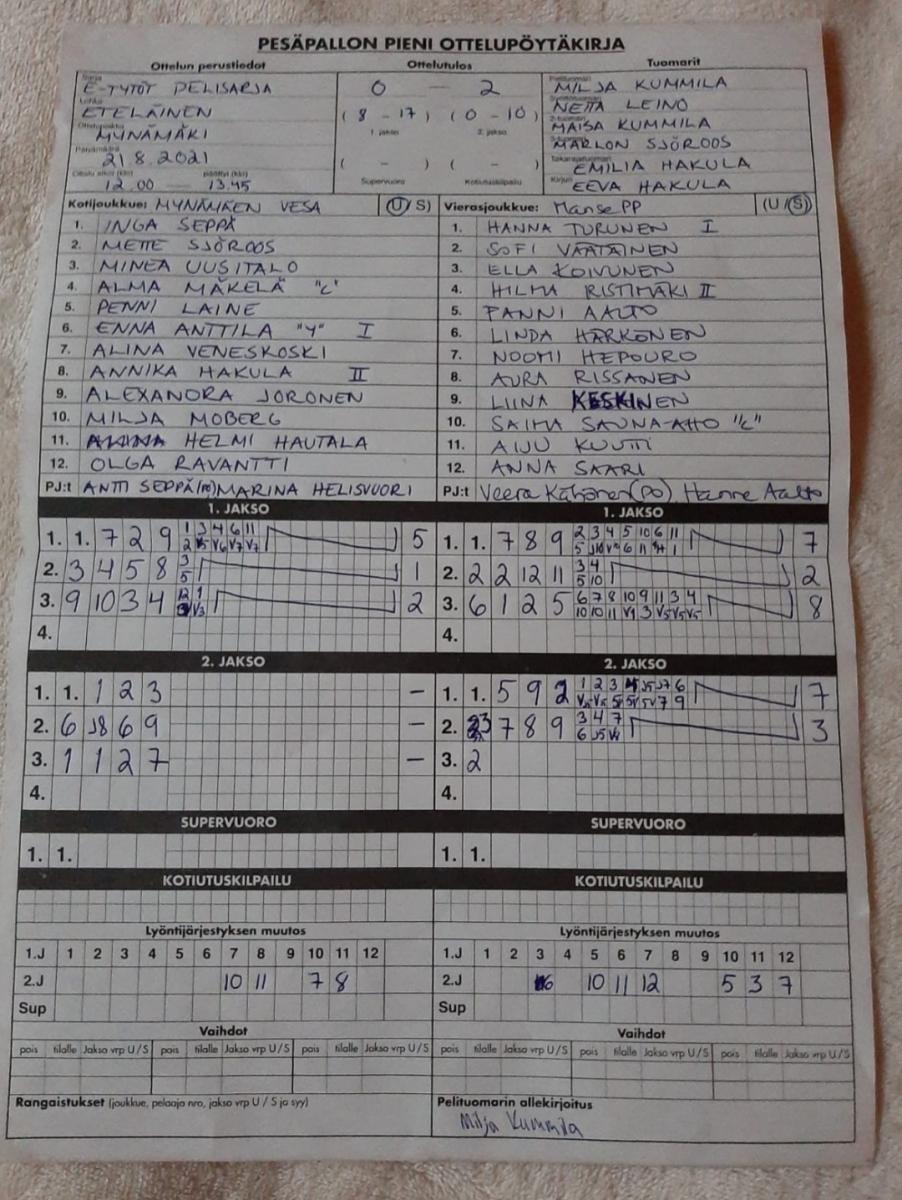 PESÄPALLON PIENI OTTELUPÖYTÄKIRJA
Ottelun perustiedot Ottelutulos Tuomarit
Sarja E-TYTÖT PELISARJA
Lohko ETELÄINEN
Ottelupaikka MYNÄMÄKI
Päivämäärä 21.8.2021
Ottelu alkoi (klo) päättyi (klo)
12.00 — 13.45
0 — 2
(8 - 17) (0 - 10)
1. jakso 2. jakso
( - ) ( - )
Supervuoro Kotiutuskilpailu
Pelituomari MILJA KUMMILA
NETTA LEINO
2-tuomari MAISA KUMMILA
3-tuomari MARLON SJÖROOS
Takarajatuomari EMILIA HAKULA
Kirjuri EEVA HAKULA
Kotijoukkue: MYNÄMÄEN VESA (U/S)
1. INGA SEPPÄ
2. METTE SJÖROOS
3. MINEA UUSITALO
4. ALMA MÄKELÄ "L"
5. PENNI LAINE
6. ENNA ANTTILA "Y" I
7. ALINA VENESKOSKI
8. ANNIKA HAKULA II
9. ALEXANDRA JORONEN
10. MILJA MOBERG
11. HELMI HAUTALA
12. OLGA RAVANTTI
PJ:t ANTTI SEPPÄ MARINA HELISVUORI
Vierasjoukkue: Manse PP (U/S)
1. HANNA TURUNEN I
2. SOFI VÄÄTÄINEN
3. ELLA KOIVUNEN
4. HILMA RISTIMÄKI II
5. FANNI AALTO
6. LINDA HÄRKÖNEN
7. NOOMI HEPOURO
8. AURA RISSANEN
9. LIINA KESKINEN
10. SAIMA SAUNA-AHO "L"
11. AIJU KUUTTI
12. ANNA SAARI
PJ:t Veera Kähönen (PO), Hanne Aalto
1. JAKSO
1. 1. 7 2 9 1 3 4 6 11 5
2. 3 4 5 8 3 5 1
3. 9 10 3 4 2
4.
1. JAKSO
1. 1. 7 8 9 2 3 4 5 10 6 11 7
2. 2 2 12 11 3 4 5 10 2
3. 6 1 2 5 6 7 8 10 9 11 3 4 8
4.
2. JAKSO
1. 1. 1 2 3 –
2. 6 J8 6 9 –
3. 1 1 2 7 –
4.
2. JAKSO
1. 1. 5 9 2 7
2. 7 8 9 3 4 7 3
3. 2
4.
SUPERVUORO
1. 1.
SUPERVUORO
1. 1.
KOTIUTUSKILPAILU
KOTIUTUSKILPAILU
Lyöntijärjestyksen muutos
1.J 1 2 3 4 5 6 7 8 9 10 11 12
2.J 10 11 7 8
Sup
Lyöntijärjestyksen muutos
1.J 1 2 3 4 5 6 7 8 9 10 11 12
2.J 6 10 11 12 5 3 7
Sup
Vaihdot
pois tilalle Jakso vrp U/S pois tilalle Jakso vrp U/S pois tilalle Jakso vrp U/S
Vaihdot
pois tilalle Jakso vrp U/S pois tilalle Jakso vrp U/S pois tilalle Jakso vrp U/S
Rangaistukset (joukkue, pelaaja nro, jakso vrp U / S ja syy)
Pelituomarin allekirjoitus
Milja Kummila